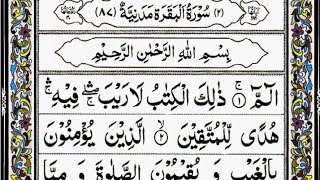 (٢) سُوْرَةُ الْبَقَرَةِ مَدَنِيَّةٌ (٨٧)
بِسْمِ اللهِ الرَّحْمٰنِ الرَّحِيْمِ
الٓمّٓ ۚ﴿١﴾ ذٰلِكَ الْكِتٰبُ لَا رَيْبَ ۛۖ فِيْهِ ۛۚ
هُدًى لِّلْمُتَّقِيْنَ ۙ﴿٢﴾ الَّذِيْنَ يُؤْمِنُوْنَ
بِالْغَيْبِ وَ يُقِيْمُوْنَ الصَّلٰوةَ وَ مِمَّا